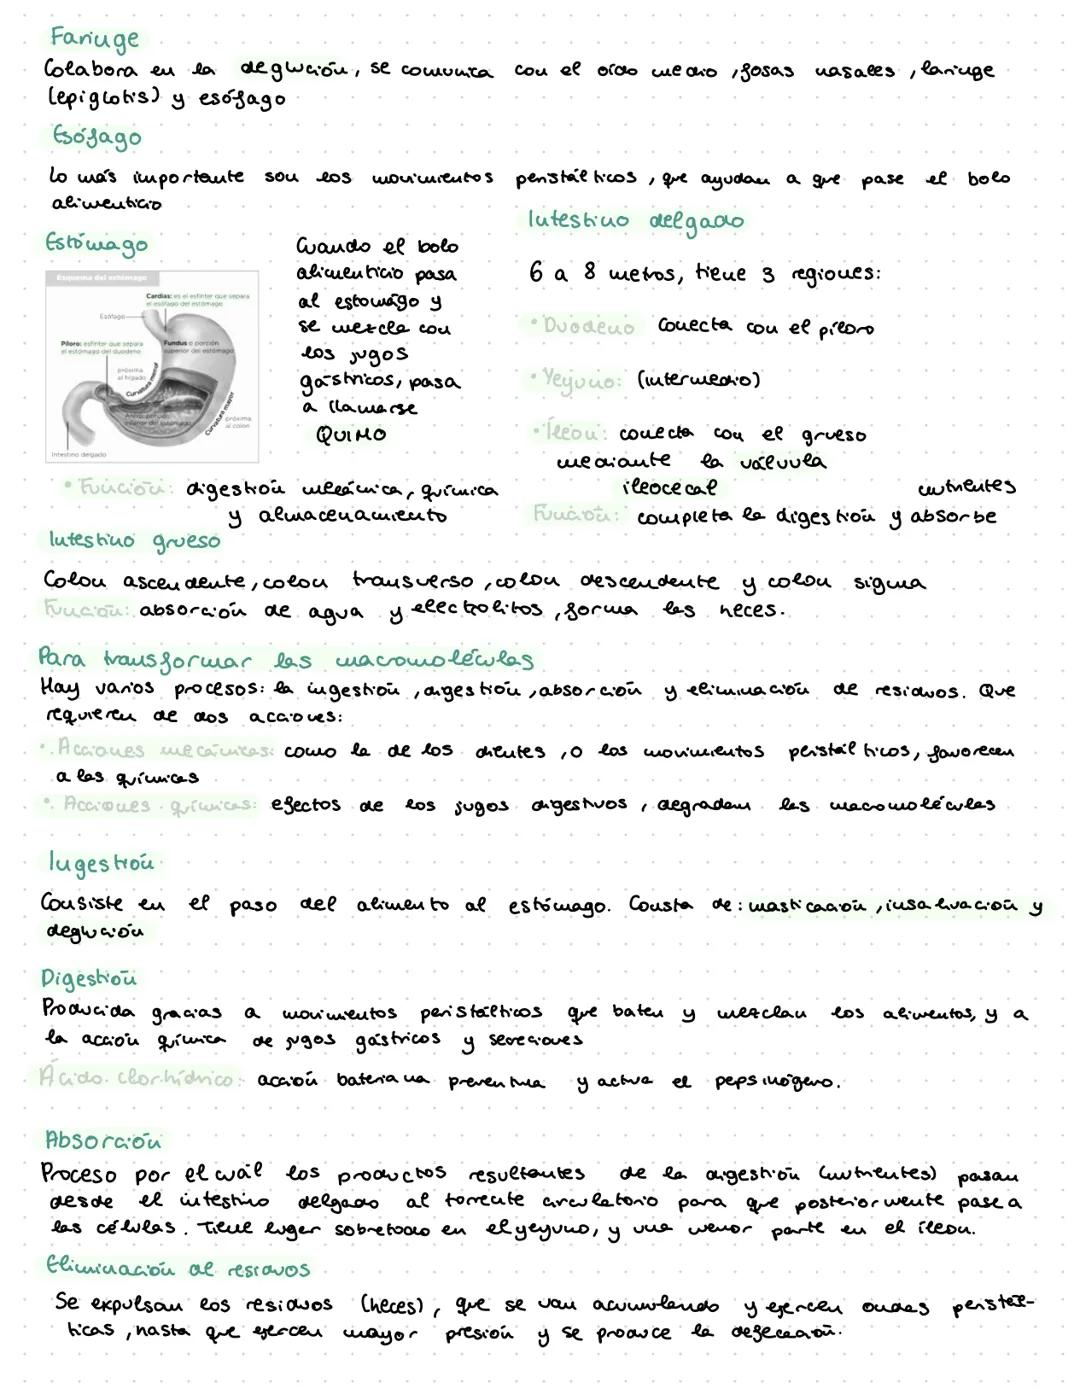 Faringe
Colabora en la deglución, se comunica con el oído medio, fosas nasales, laringe
(epiglotis) y esófago
Esófago
Lo más importante son los movimientos peristálticos, que ayudan a que pase el bolo
alimenticio
Estómago
Esquema del estómago
Cardias: es el esfínter que separa
el esófago del estómago
Esófago
Píloro: esfínter que separa
el estómago del duodeno
Fundus o porción
superior del estómago
próxima
al hígado
Curvatura menor
Antro: porción
inferior del estómago
Curvatura mayor
próxima
al colon
Intestino delgado
Cuando el bolo
alimenticio pasa
al estomágo y
se mezcla con
los jugos
gástricos, pasa
a llamarse
QUIMO
• Función: digestión mecánica, química
y almacenamiento
Intestino delgado
6 a 8 metros, tiene 3 regiones:
• Duodeno conecta con el píloro
• Yeyuno: (intermedio)
• Íleon: conecta con el grueso
mediante la válvula
ileocecal
nutrientes
Función: completa la digestión y absorbe
Intestino grueso
Colon ascendente, colon transverso, colon descendente y colon sigma
Función: absorción de agua y electrolitos, forma las heces.
Para transformar las macromoléculas
Hay varios procesos: la ingestión, digestión, absorción y eliminación de residuos. Que
requieren de dos acciones:
• Acciones mecánicas: como la de los dientes, o los movimientos peristálticos, favorecen
a las químicas
• Acciones químicas: efectos de los jugos digestivos, degradan las macomoléculas
Ingestión
Consiste en el paso del alimento al estómago. Consta de: masticación, insalivación y
deglución
Digestión
Producida gracias a movimientos peristálticos que baten y mezclan los alimentos, y a
la acción química de jugos gástricos y secreciones
Ácido clorhídrico: acción bateriana preventiva y activa el pepsinógeno.
Absorción
Proceso por el cuál los productos resultantes de la digestión (nutrientes) pasan
desde el intestino delgado al torrente circulatorio para que posteriormente pase a
las células. Tiene lugar sobretodo en el yeyuno, y una menor parte en el íleon.
Eliminación de residuos
Se expulsan los residuos (heces), que se van acumulando y ejercen ondas peristál-
ticas, hasta que ejercen mayor presión y se produce la defecación.